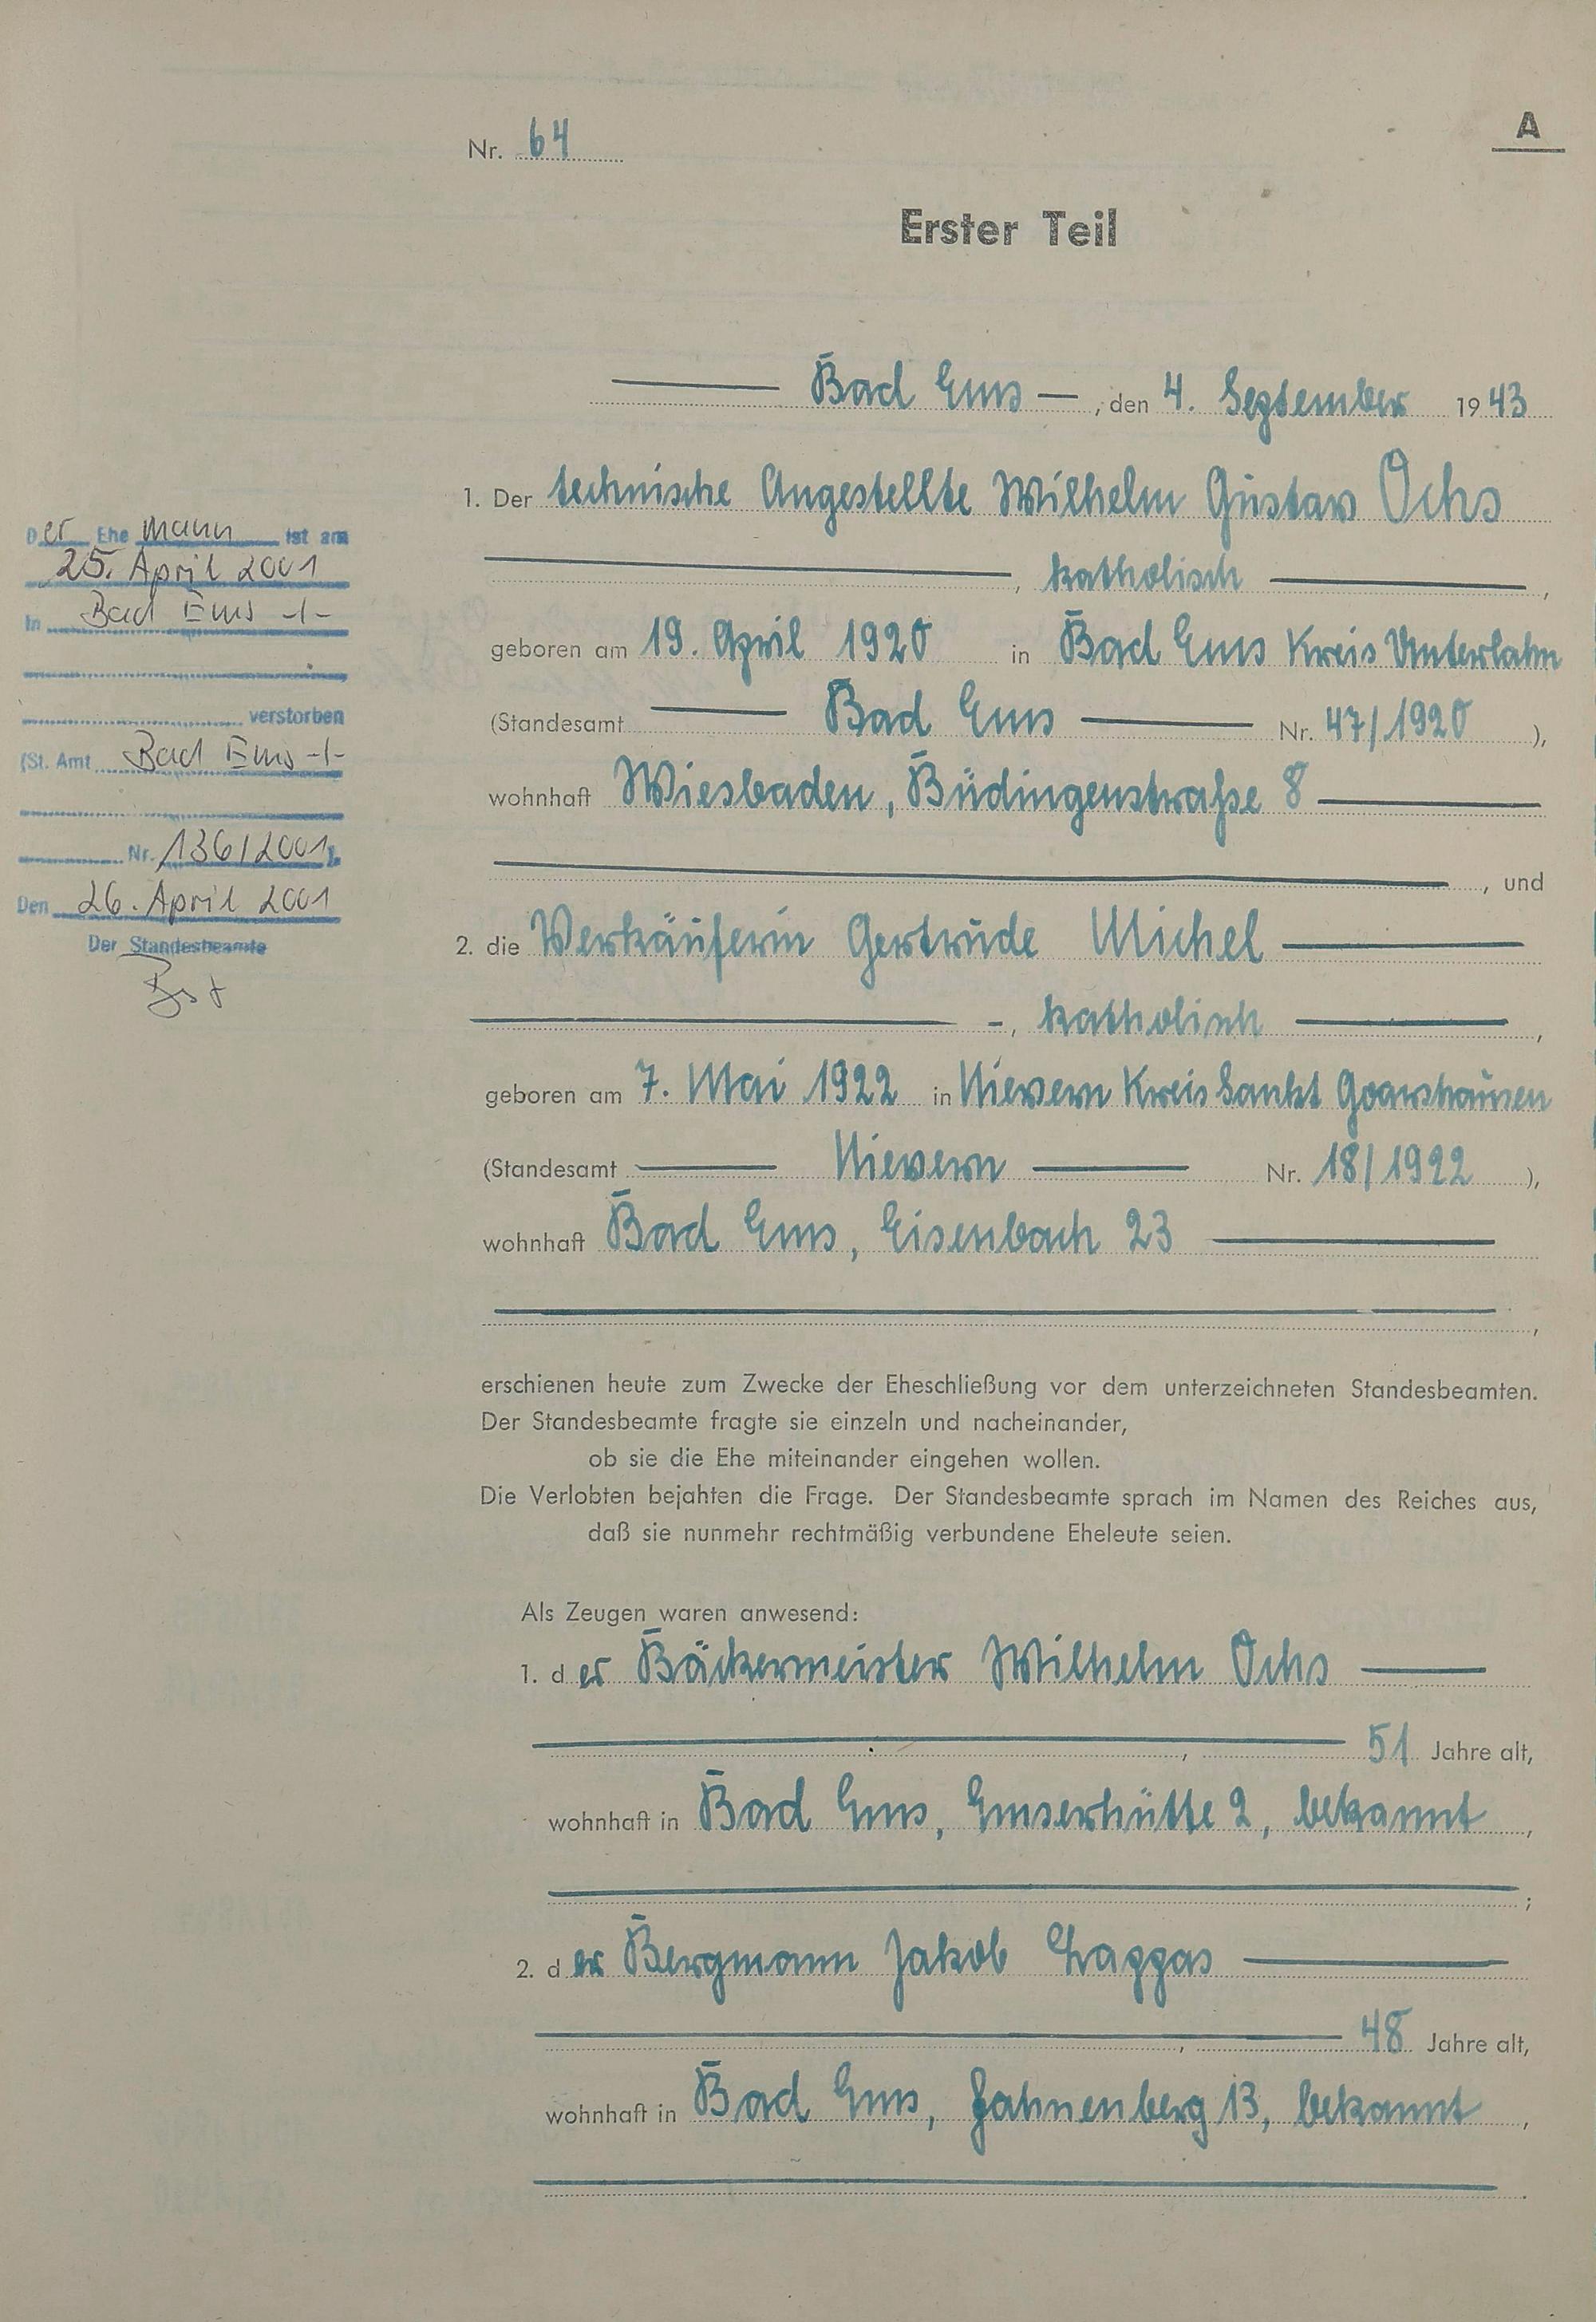 A
Nr. 64
Erster Teil
Bad Ems —, den 4. September 1943
1. Der technische Angestellte Wilhelm Gustav Ochs
, katholisch ,
geboren am 19. April 1920 in Bad Ems Kreis Unterlahn
(Standesamt Bad Ems Nr. 47/1920 ),
wohnhaft Wiesbaden, Büdingenstraße 8
, und
2. die Verkäuferin Gertrude Michel
-, katholisch ,
geboren am 7. Mai 1922 in Nievern Kreis Sankt Goarshausen
(Standesamt Nievern Nr. 18/1922 ),
wohnhaft Bad Ems, Eisenbach 23
,
erschienen heute zum Zwecke der Eheschließung vor dem unterzeichneten Standesbeamten.
Der Standesbeamte fragte sie einzeln und nacheinander,
ob sie die Ehe miteinander eingehen wollen.
Die Verlobten bejahten die Frage. Der Standesbeamte sprach im Namen des Reiches aus,
daß sie nunmehr rechtmäßig verbundene Eheleute seien.
Als Zeugen waren anwesend:
1. der Bäckermeister Wilhelm Ochs
, 51 Jahre alt,
wohnhaft in Bad Ems, Emserhütte 2, bekannt ,
;
2. der Bergmann Jakob
, 48 Jahre alt,
wohnhaft in Bad Ems, Fahnenberg 13, bekannt ,
.
Der Ehemann ist am
25. April 2001
In Bad Ems -/-
verstorben
(St. Amt Bad Ems -/-
Nr. 136/2001).
Den 26. April 2001
Der Standesbeamte